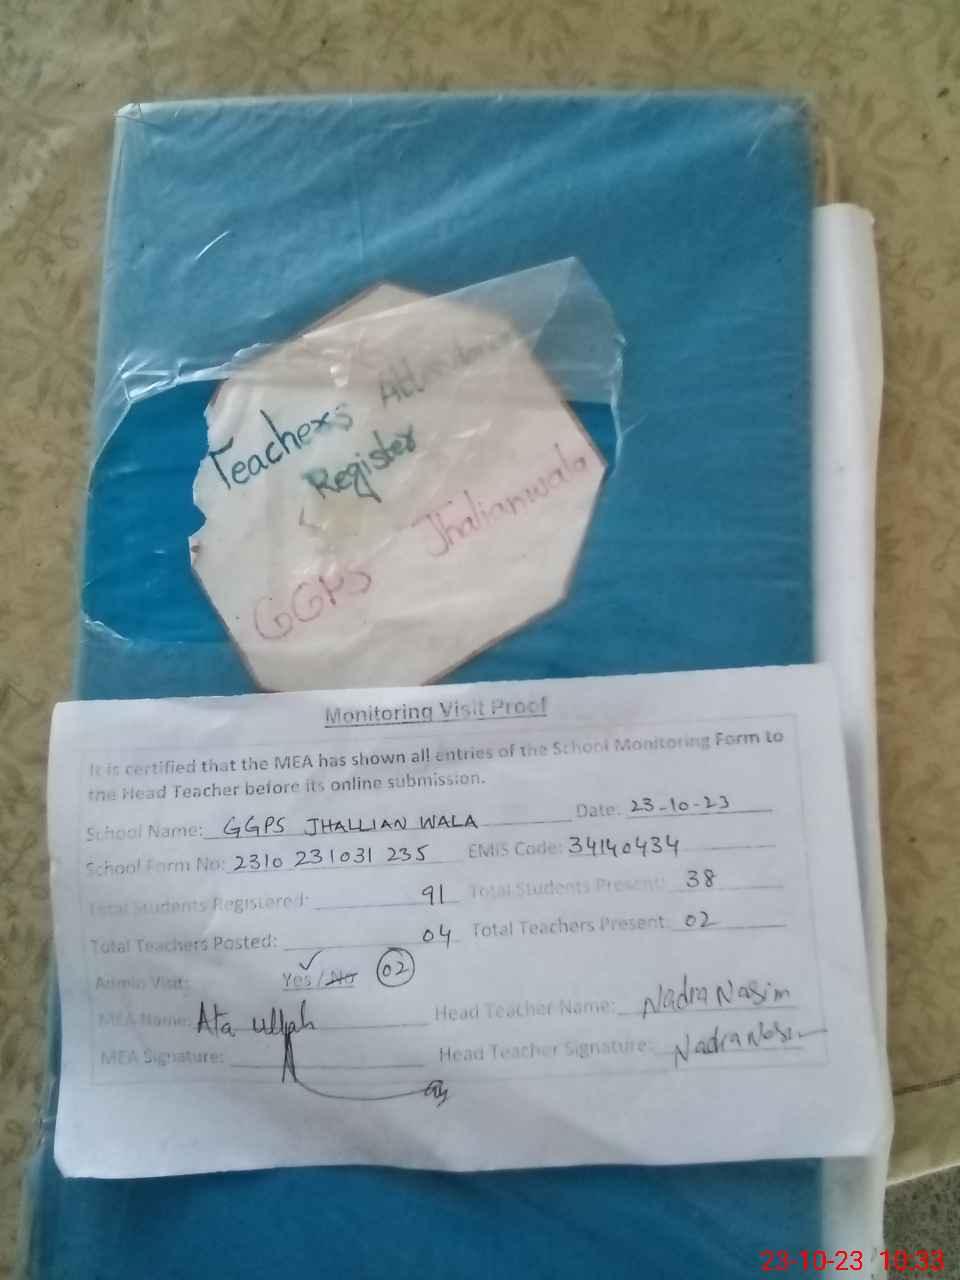 Teachers Attendance
Register
GGPS Jhalianwala
Monitoring Visit Proof
It is certified that the MEA has shown all entries of the School Monitoring Form to
the Head Teacher before its online submission.
School Name: GGPS JHALLIAN WALA Date: 23-10-23
School Form No: 2310 231031 235 EMIS Code: 34140434
Total Students Registered: 91 Total Students Present: 38
Total Teachers Posted: 04 Total Teachers Present: 02
Admin Visit: Yes / No 02
MEA Name: Ata ullah Head Teacher Name: Nadra Nasim
MEA Signature: Head Teacher Signature: Nadra Nasim
23-10-23 10:33